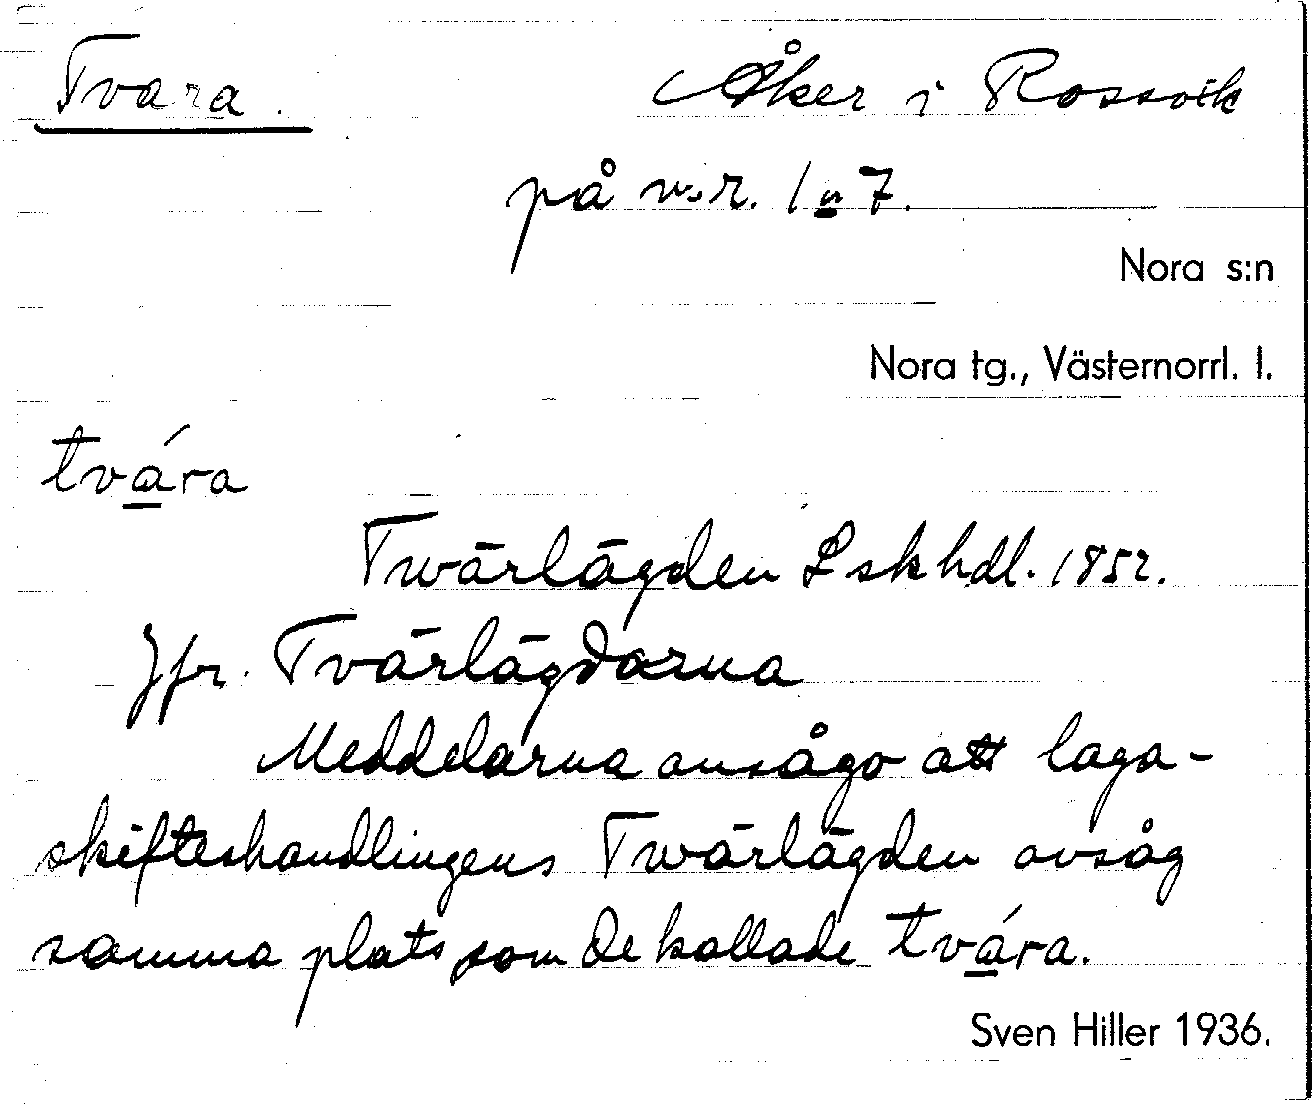 Tvara. Åker i Rossvik
på n.r. 1 o 7.
Nora s:n
Nora tg., Västernorrl. l.
tvára
Twärlägden L sk hdl. 1852.
Jfr. Tvärlägdarna
Meddelarna ansågo att laga-
skifteshandlingens Twärlägden avsåg
samma plats som de kallade tvára.
Sven Hiller 1936.